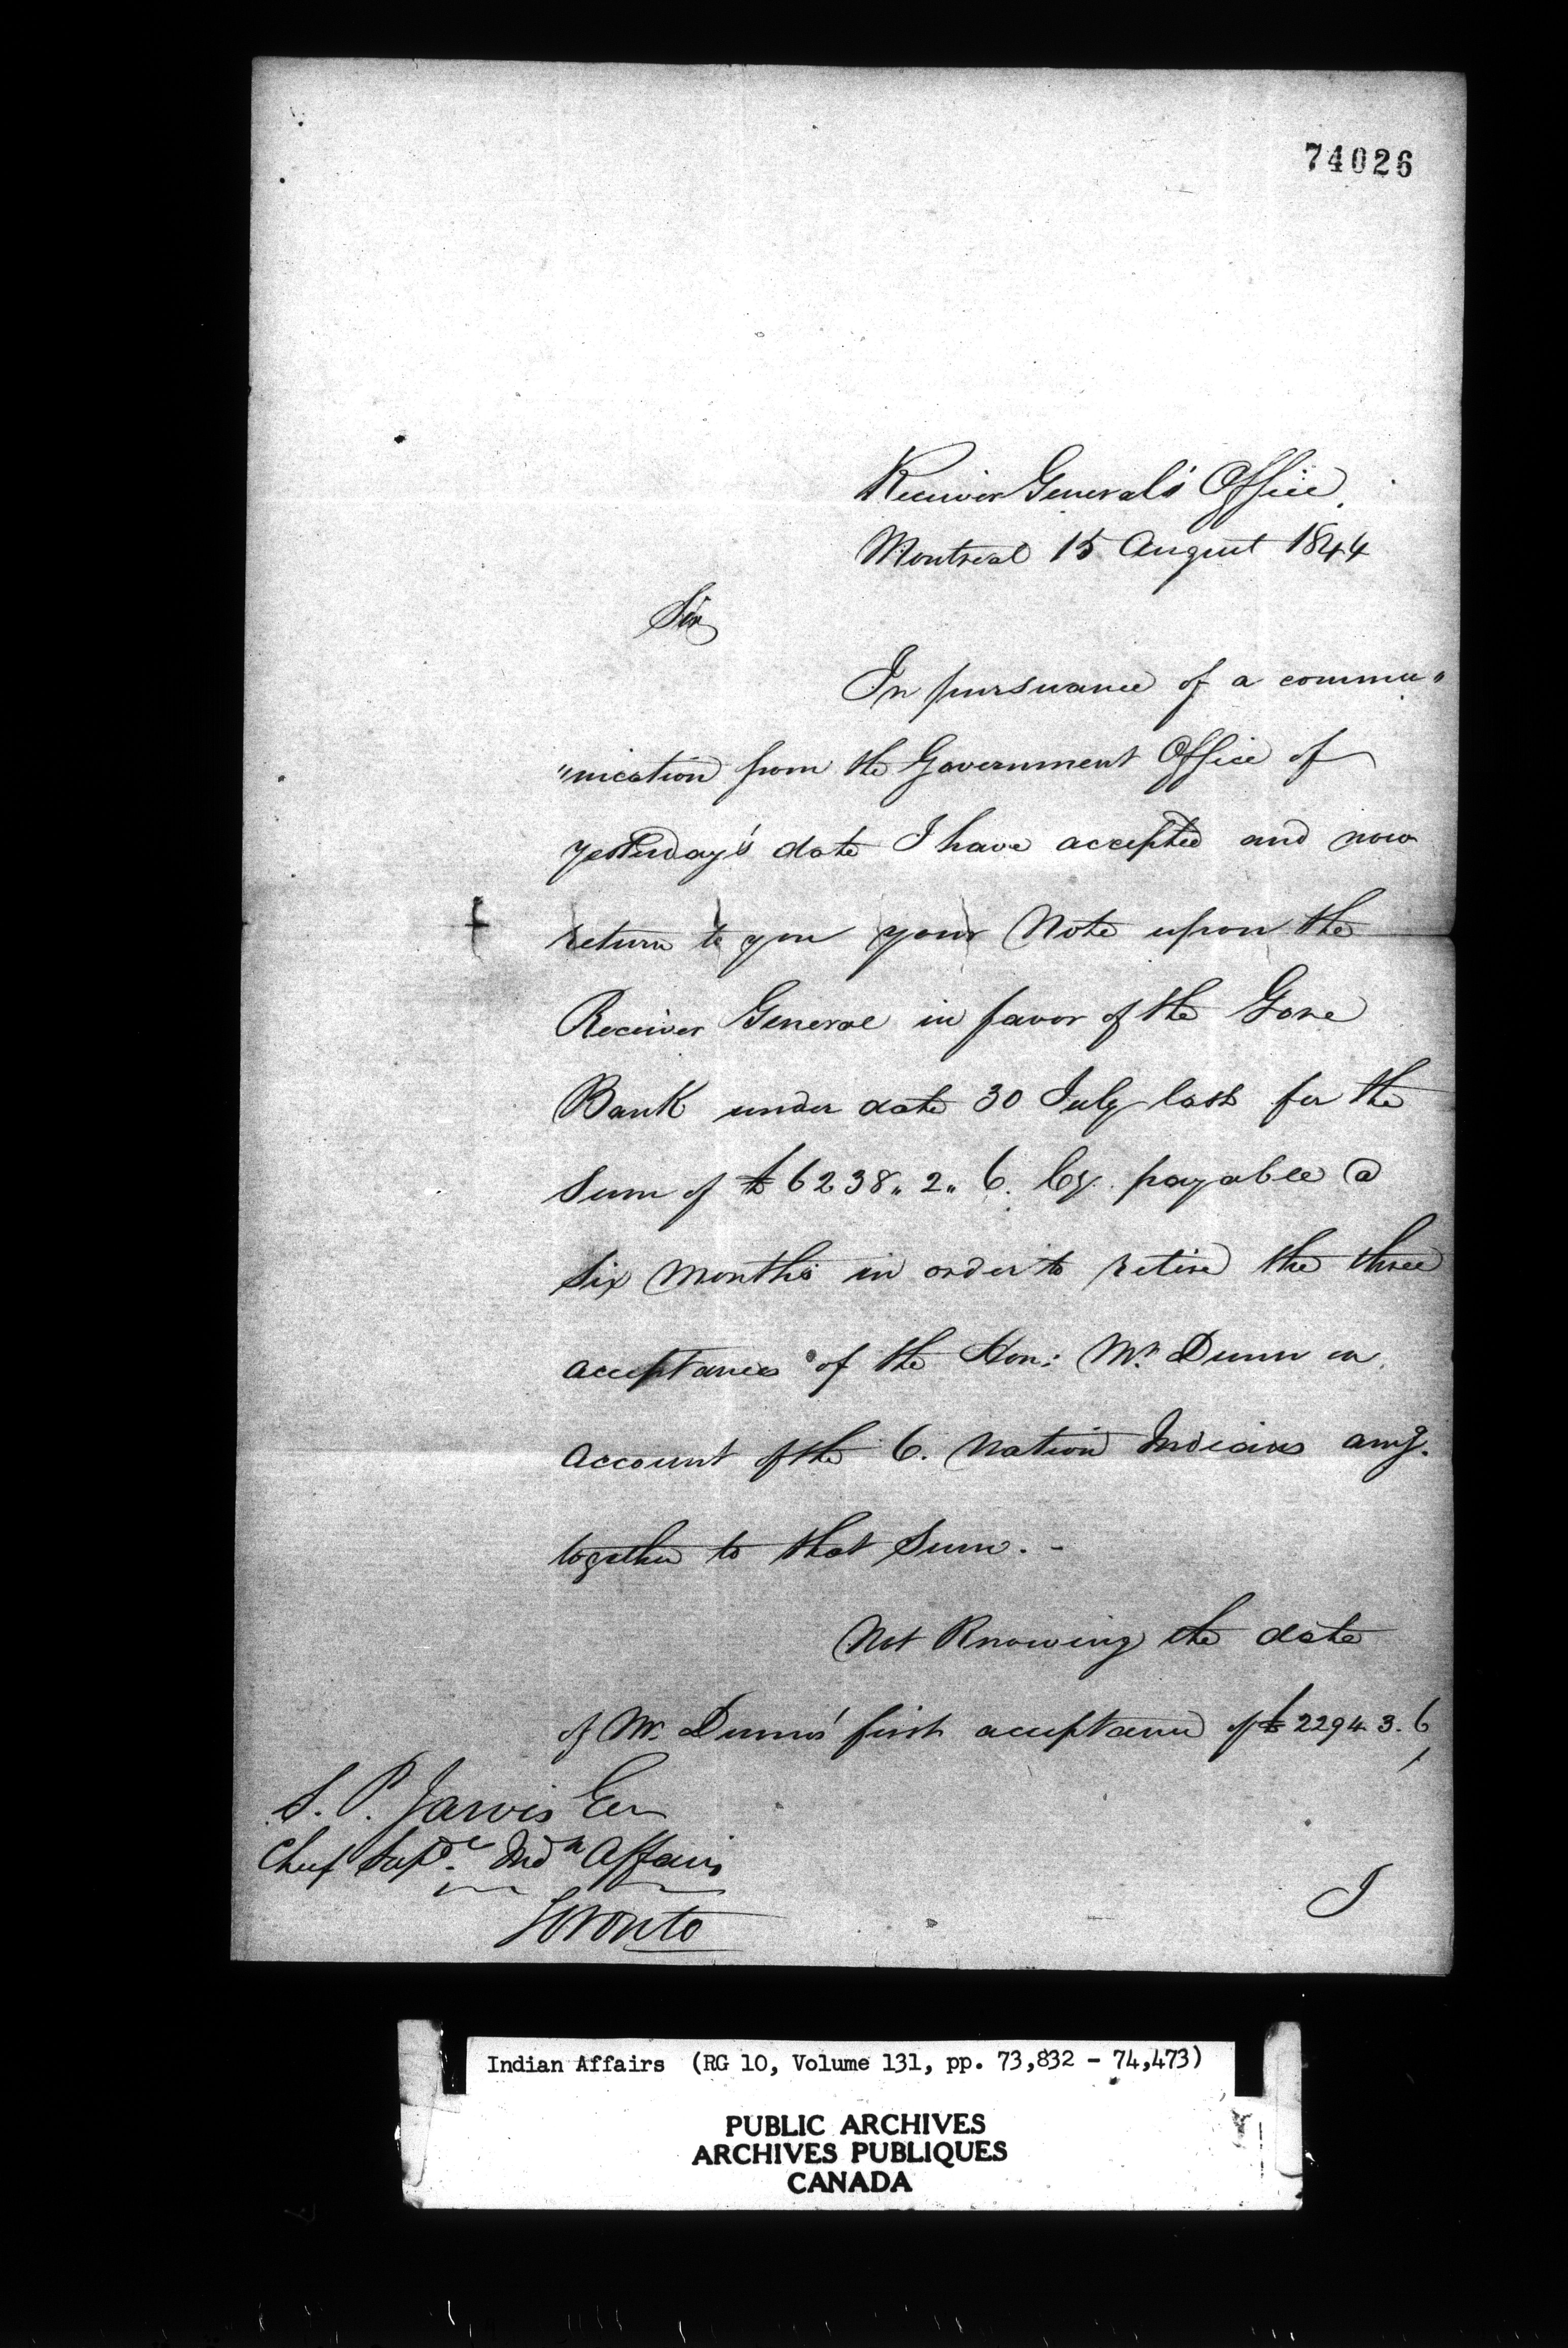 74026
Receiver General's Office.
Montreal 15 August 1844
Sir
In pursuance of a commu"
"nication from the Government Office of
yesterday's date I have accepted and now
return to you your Note upon the
Receiver General in favor of the Gore
Bank under date 30 July last for the
Sum of £6238,, 2,, 6. Cy. payable @
Six Months in order to retire the three
acceptances of the Hon: Mr. Dunn on
account of the 6. Nation Indians amg.
together to that Sum. -
Not Knowing the date
of Mr. Dunn's first acceptance of £2294. 3. 6,
S. P. Jarvis Esr
Chief Supde. Indn Affairs
Toronto
I
Indian Affairs (RG 10, Volume 131, pp. 73,832 - 74,473)
PUBLIC ARCHIVES
ARCHIVES PUBLIQUES
CANADA